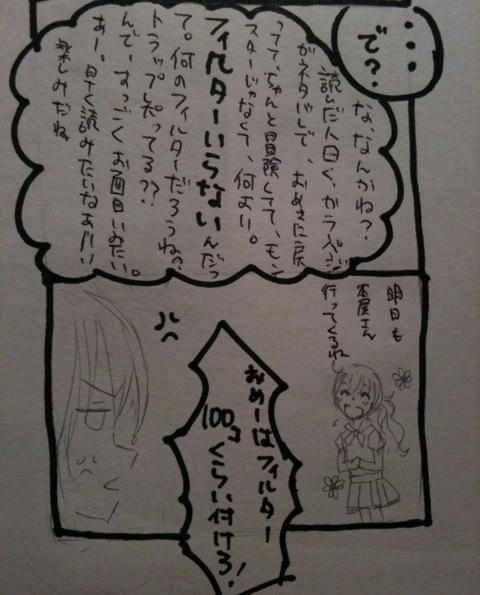 …
で?
な、なんかね?
読んだ人曰く、カラーページ
がネタバレで、
ってて、ちゃんと冒険してて、モン
スターじゃなくて、何より。
フィルターいらないんだっ
て。何のフィルターだろうね?
トラップ知ってる??
んで、すっごくお面白いみたい。
あー、早く読みたいなぁ!!
楽しみだね
明日も
本屋さん
行ってくるね
おめーはフィルター
100コくらい付けろ!